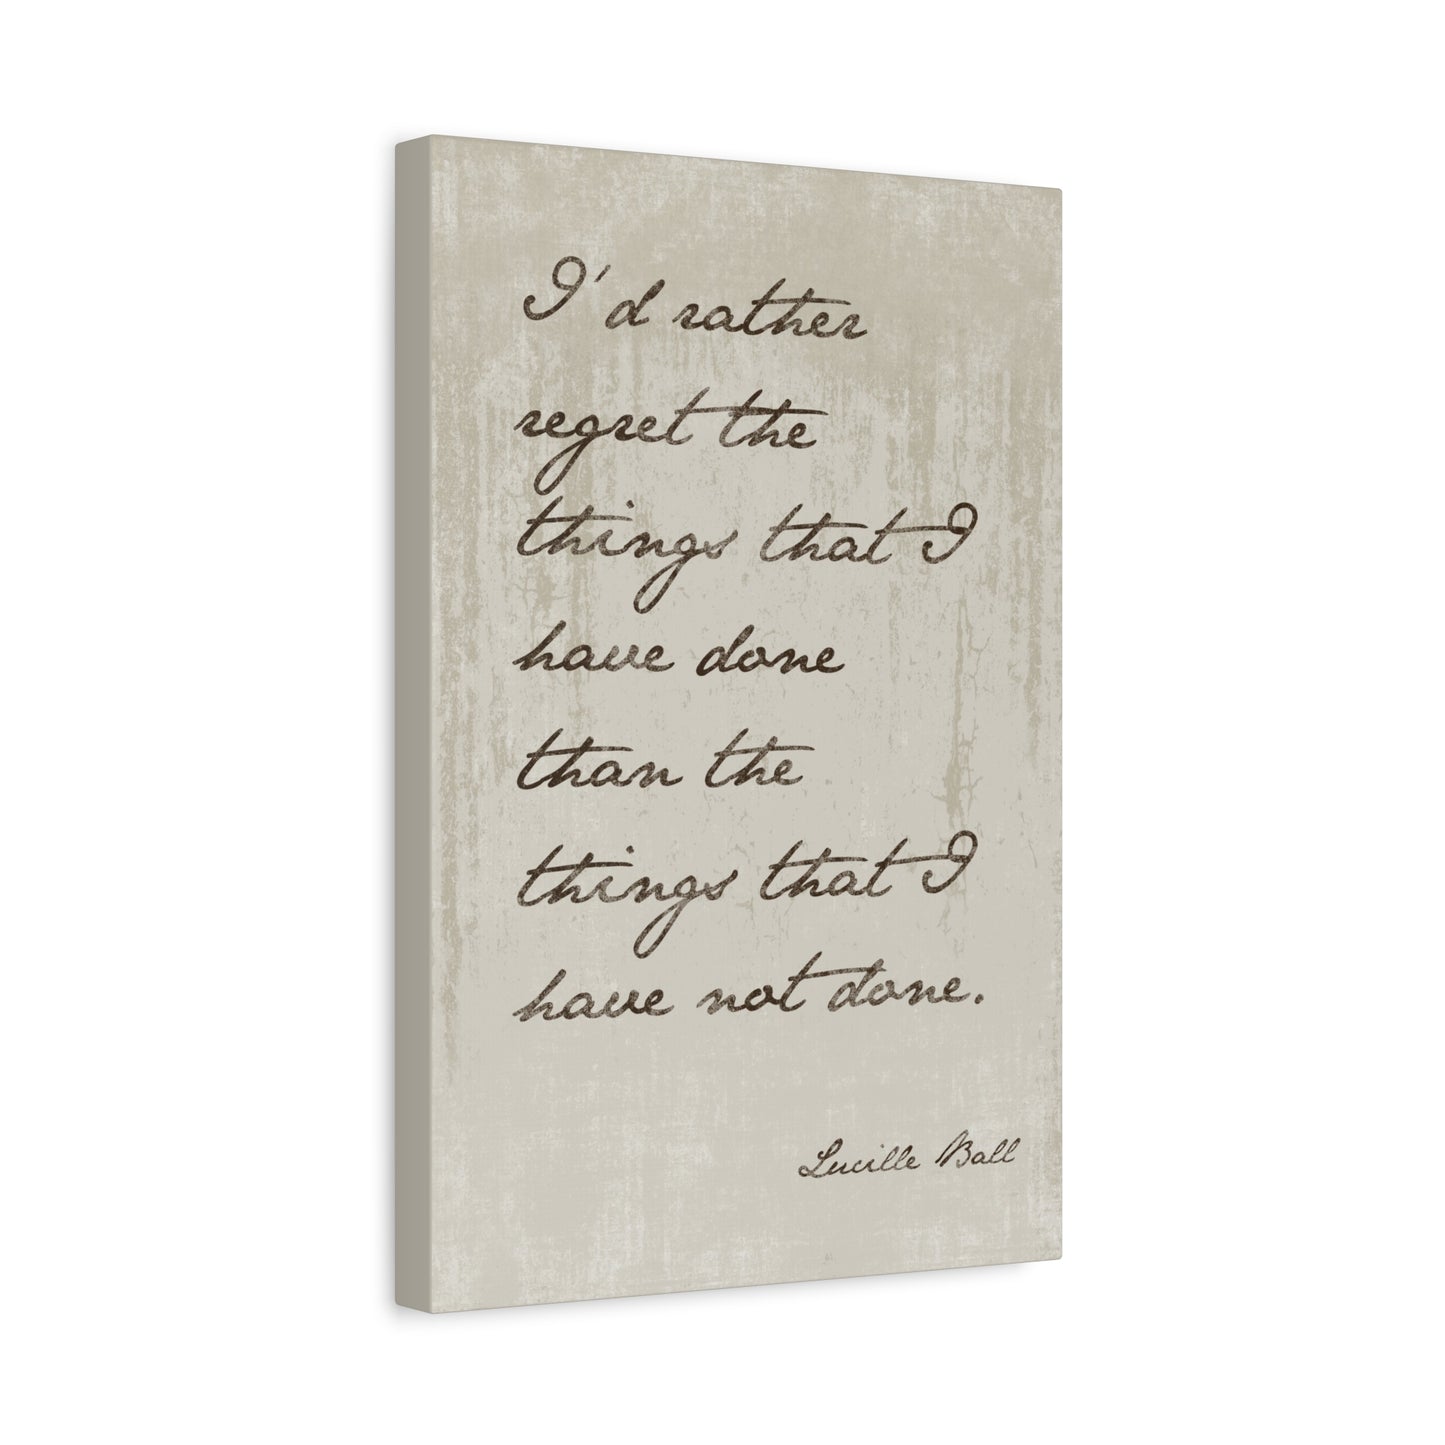 I'd rather
regret the
things that I
have done
than the
things that I
have not done.
Lucille Ball